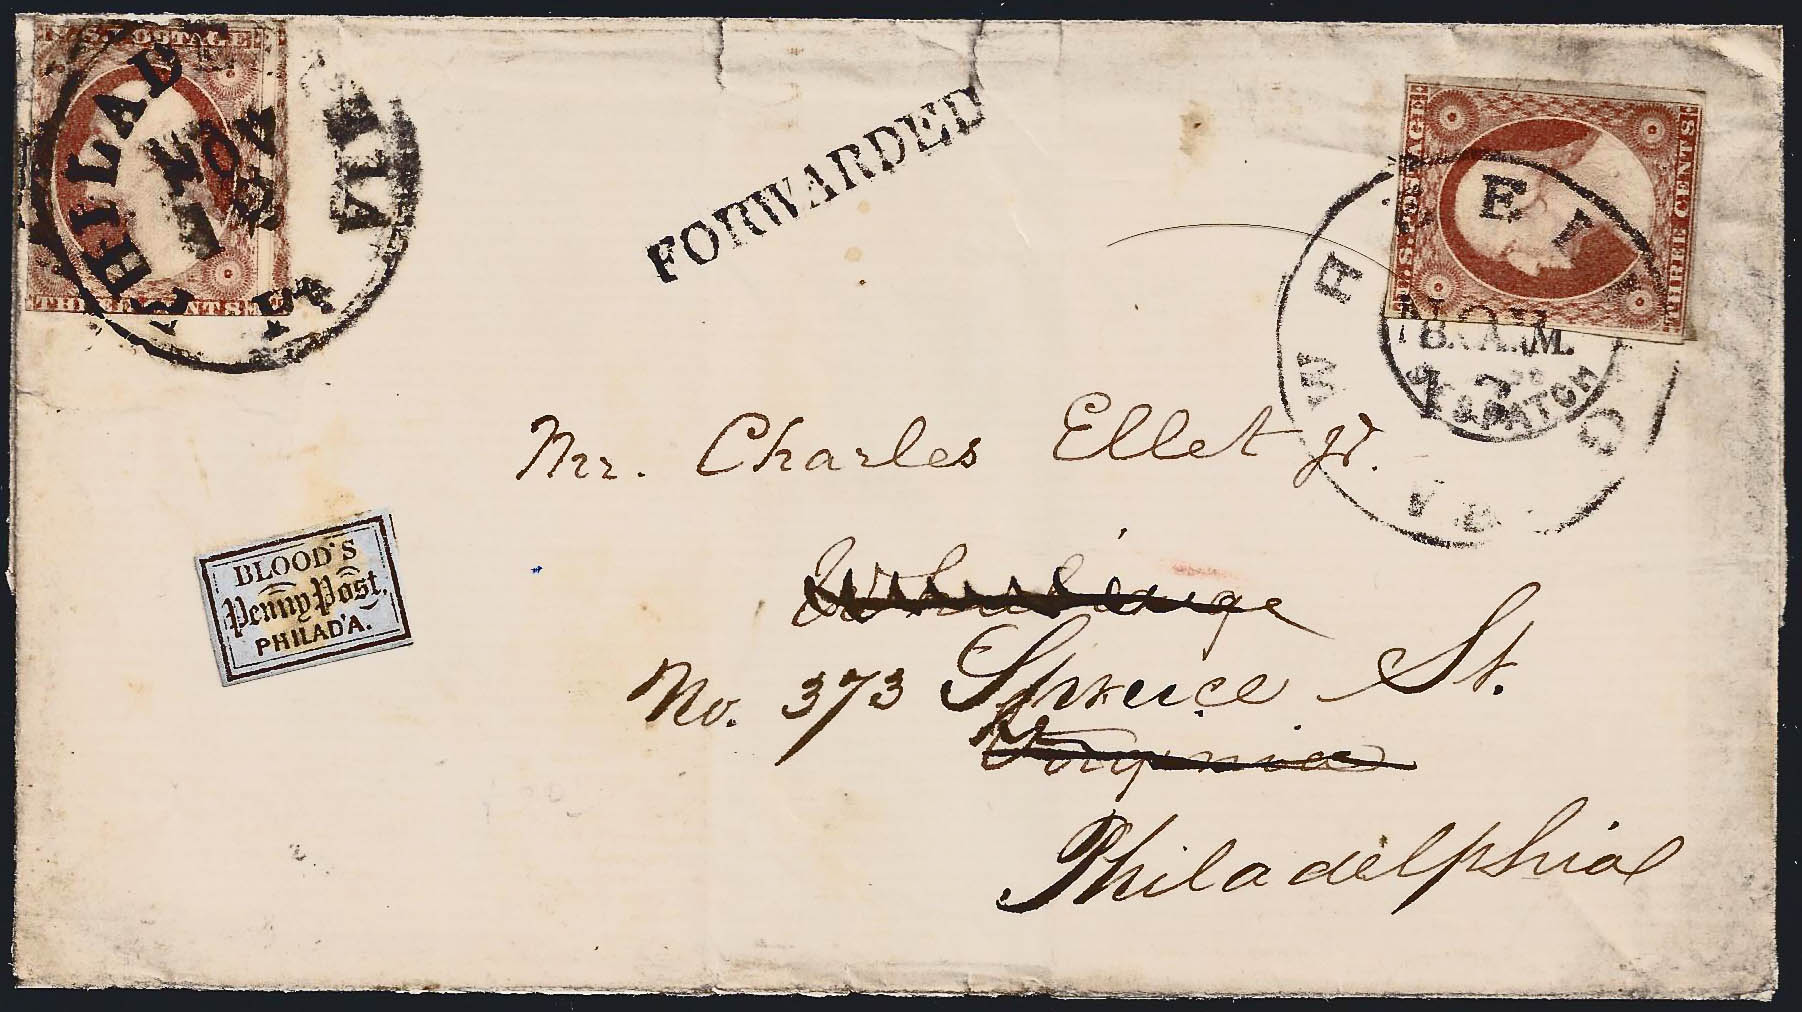 U.S. POSTAGE
THREE CENTS
PHILADELPHIA
NOV
Pa.
FORWARDED
U.S. POSTAGE
THREE CENTS
WHEELING
NOV
8.A.M.
DISPATCH
VA.
Mr. Charles Ellet Jr.
Wheeling
BLOOD'S
Penny Post,
PHILAD'A.
No. 373 Spruce St.
Virginia
Philadelphia